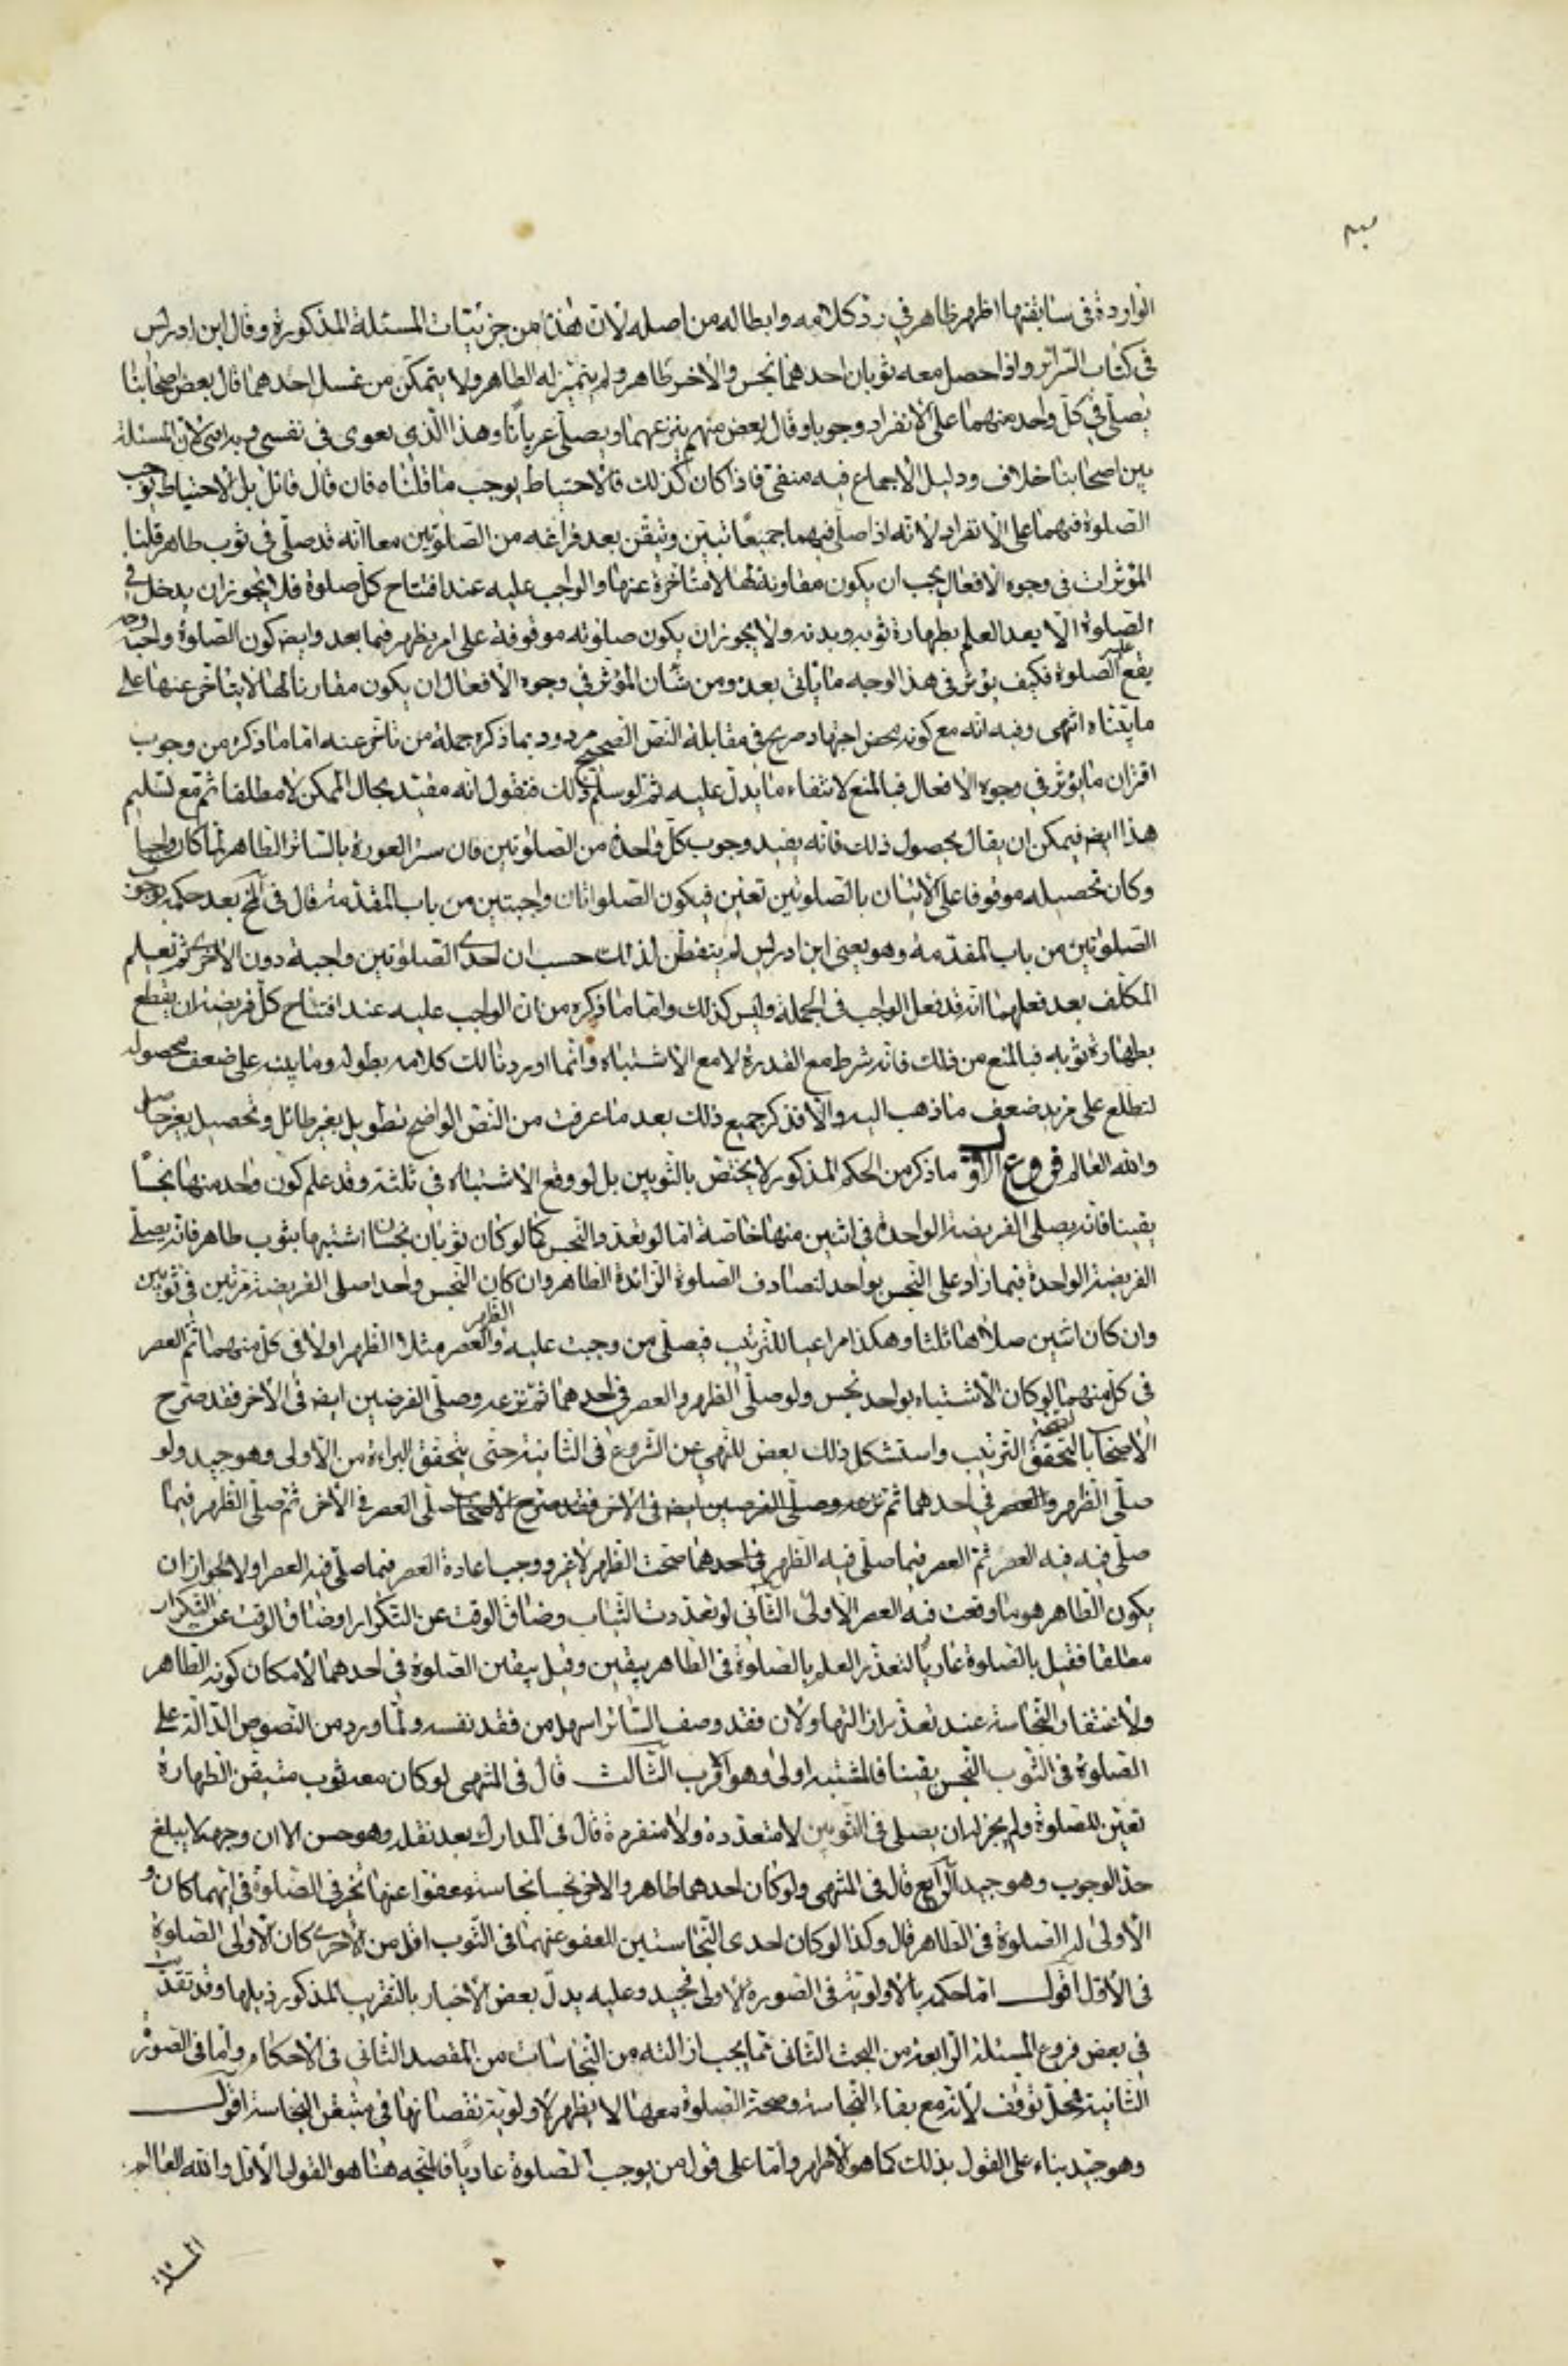 الواردة في سابقتها اظهر ظاهر في رد كلامه وابطاله من اصله لان هذا من جزئيات المسئلة المذكورة وقال ابن ادريس
في كتاب السرائر واذا حصل معه ثوبان احدهما نجس والاخر طاهر ولم يتميز له الطاهر ولا يتمكن من غسل احدهما قال بعض اصحابنا
يصلي في كل واحد منهما على الانفراد وجوبا وقال بعض منهم ينزعهما ويصلي عريانا وهذا الذي يقوى في نفسي وبه افتي لان المسئلة
بين اصحابنا خلاف ودليل الاجماع فيه منفي فاذا كان كذلك فالاحتياط يوجب ما قلناه فان قال قائل بل الاحتياط يوجب
الصلوة فيهما على الانفراد لانه اذا صلى فيهما جميعا تبين وتيقن بعد فراغه من الصلوتين معا انه قد صلى في ثوب طاهر قلنا
المؤثرات في وجوه الافعال يجب ان يكون مقارنة لها لا متأخرة عنها والواجب عليه عند افتتاح كل صلوة فلا يجوز ان يدخل في
الصلوة الا بعد العلم بطهارة ثوبه وبدنه ولا يجوز ان يكون صلوته موقوفة على امر يظهر فيما بعد وايضا كون الصلوة واجبة وجه
يقع عليه الصلوة فكيف يؤثر في هذا الوجه ما يأتي بعده ومن شان المؤثر في وجوه الافعال ان يكون مقارنا لها لا يتاخر عنها على
ما بيناه انتهى وفيه انه مع كونه محض اجتهاد صريح في مقابلة النص الصحيح مردود بما ذكره جملة من تاخر عنه اما ما ذكره من وجوب
اقتران ما يؤثر في وجوه الافعال فبالمنع لانتفاء ما يدل عليه ثم لو سلم ذلك فنقول انه مقيد بحال الممكن لا مطلقا ثم مع تسليم
هذا ايضا فيمكن ان يقال بحصول ذلك فانه يفيد وجوب كل واحدة من الصلوتين فان ستر العورة بالساتر الطاهر لما كان واجبا
وكان تحصيله موقوفا على الاتيان بالصلوتين تعين فيكون الصلوتان واجبتين من باب المقدمة قال في لخ بعد حكمه بوجوب
الصلوتين من باب المقدمة وهو يعني ابن ادريس لم يتفطن لذلك حسب ان احدى الصلوتين واجبة دون الاخرى ثم تعلم
المكلف بعد فعلهما انه قد فعل الواجب في الجملة وليس كذلك واما ما ذكره من ان الواجب عليه عند افتتاح كل فريضة ان يقطع
بطهارة ثوبه فبالمنع من ذلك فانه شرط مع القدرة لا مع الاشتباه وانما اوردنا لك كلامه بطوله وما بينه على ضعف محصوله
لتطلع على مزيد ضعف ما ذهب اليه والا فذكر جميع ذلك بعد ما عرفت من النص الواضح تطويل بغير طائل وتحصيل بغير حاصل
والله العالم فروع الاول ما ذكر من الحكم المذكور لا يختص بالثوبين بل لو وقع الاشتباه في ثلثة وقد علم كون واحد منها نجسا
يقينا فانه يصلي الفريضة الواحدة في اثنين منها خاصة اما لو تعدد النجس كما لو كان ثوبان نجسان اشتبها بثوب طاهر فانه يصلي
الفريضة الواحدة فيما زاد على النجس بواحد لتصادف الصلوة الزائدة الطاهر وان كان النجس واحدا صلى الفريضة مرتين في ثوبين
وان كان اثنين صلاها ثلثا وهكذا مراعيا للترتيب فيصلي من وجبت عليه الظهر والعصر مثلا الظهر اولا في كل منهما ثم العصر
في كل منهما لو كان الاشتباه بواحد نجس ولو صلى الظهر والعصر في احدهما ثم نزعه وصلى الفرضين ايضا في الاخر فقد صرح
الاصحاب بالصحة لتحقق الترتيب واستشكل ذلك بعض للنهي عن الشروع في الثانية حتى يتحقق البراءة من الاولى وهو جيد ولو
صلى الظهر والعصر في احدهما ثم نزعه وصلى الفرضين ايضا في الاخر فقد صرح الاصحاب صلى العصر في الاخر ثم صلى الظهر فيما
صلى فيه فيه العصر ثم العصر فيما صلى فيه الظهر في احدهما صحت الظهر لا غير ووجب اعادة العصر فيما صلى فيه العصر اولا لجواز ان
يكون الطاهر هو ما وقعت فيه العصر الاولى الثاني لو تعددت الثياب وضاق الوقت عن التكرار او ضاق الوقت عن التكرار
مطلقا فقيل بالصلوة عاريا لتعذر العلم بالصلوة في الطاهر بيقين وقيل بيقين الصلوة في احدهما لامكان كونه الطاهر
ولاغتفار النجاسة عند تعذر ازالتها ولان فقد وصف الساتر اسهل من فقد نفسه ولما ورد من النصوص الدالة على
الصلوة في الثوب النجس يقينا فالمشتبه اولى وهو اقرب الثالث قال في المنتهى لو كان معه ثوب متيقن الطهارة
تعين للصلوة ولم يجز له ان يصلي في الثوبين لا متعددة ولا منفردة قال في المدارك بعد نقله وهو حسن الا ان وجهه لا يبلغ
حد الوجوب وهو جيد الرابع قال في المنتهى ولو كان احدهما طاهرا والاخر نجسا نجاسة معفوا عنها تخير في الصلوة في ايهما كان و
الاولى له الصلوة في الطاهر قال وكذا لو كان احدى النجاستين المعفو عنهما في الثوب اقل من الاخرى كان الاولى الصلوة
في الاقل اقول اما حكمه بالاولوية في الصورة الاولى فجيد وعليه يدل بعض الاخبار بالتقريب المذكور ذيلها وقد تقدمت
في بعض فروع المسئلة الرابعة من البحث الثاني فيما يجب ازالته من النجاسات من المقصد الثاني في الاحكام واما في الصورة
الثانية فمحل توقف لانه مع بقاء النجاسة وصحة الصلوة معها لا يظهر لاولوية نقصانها في متيقن النجاسة اقول
وهو جيد بناء على القول بذلك كما هو الاظهر واما على قول من يوجب الصلوة عاريا فالمتجه هنا هو القول الاول والله العالم
المسئلة